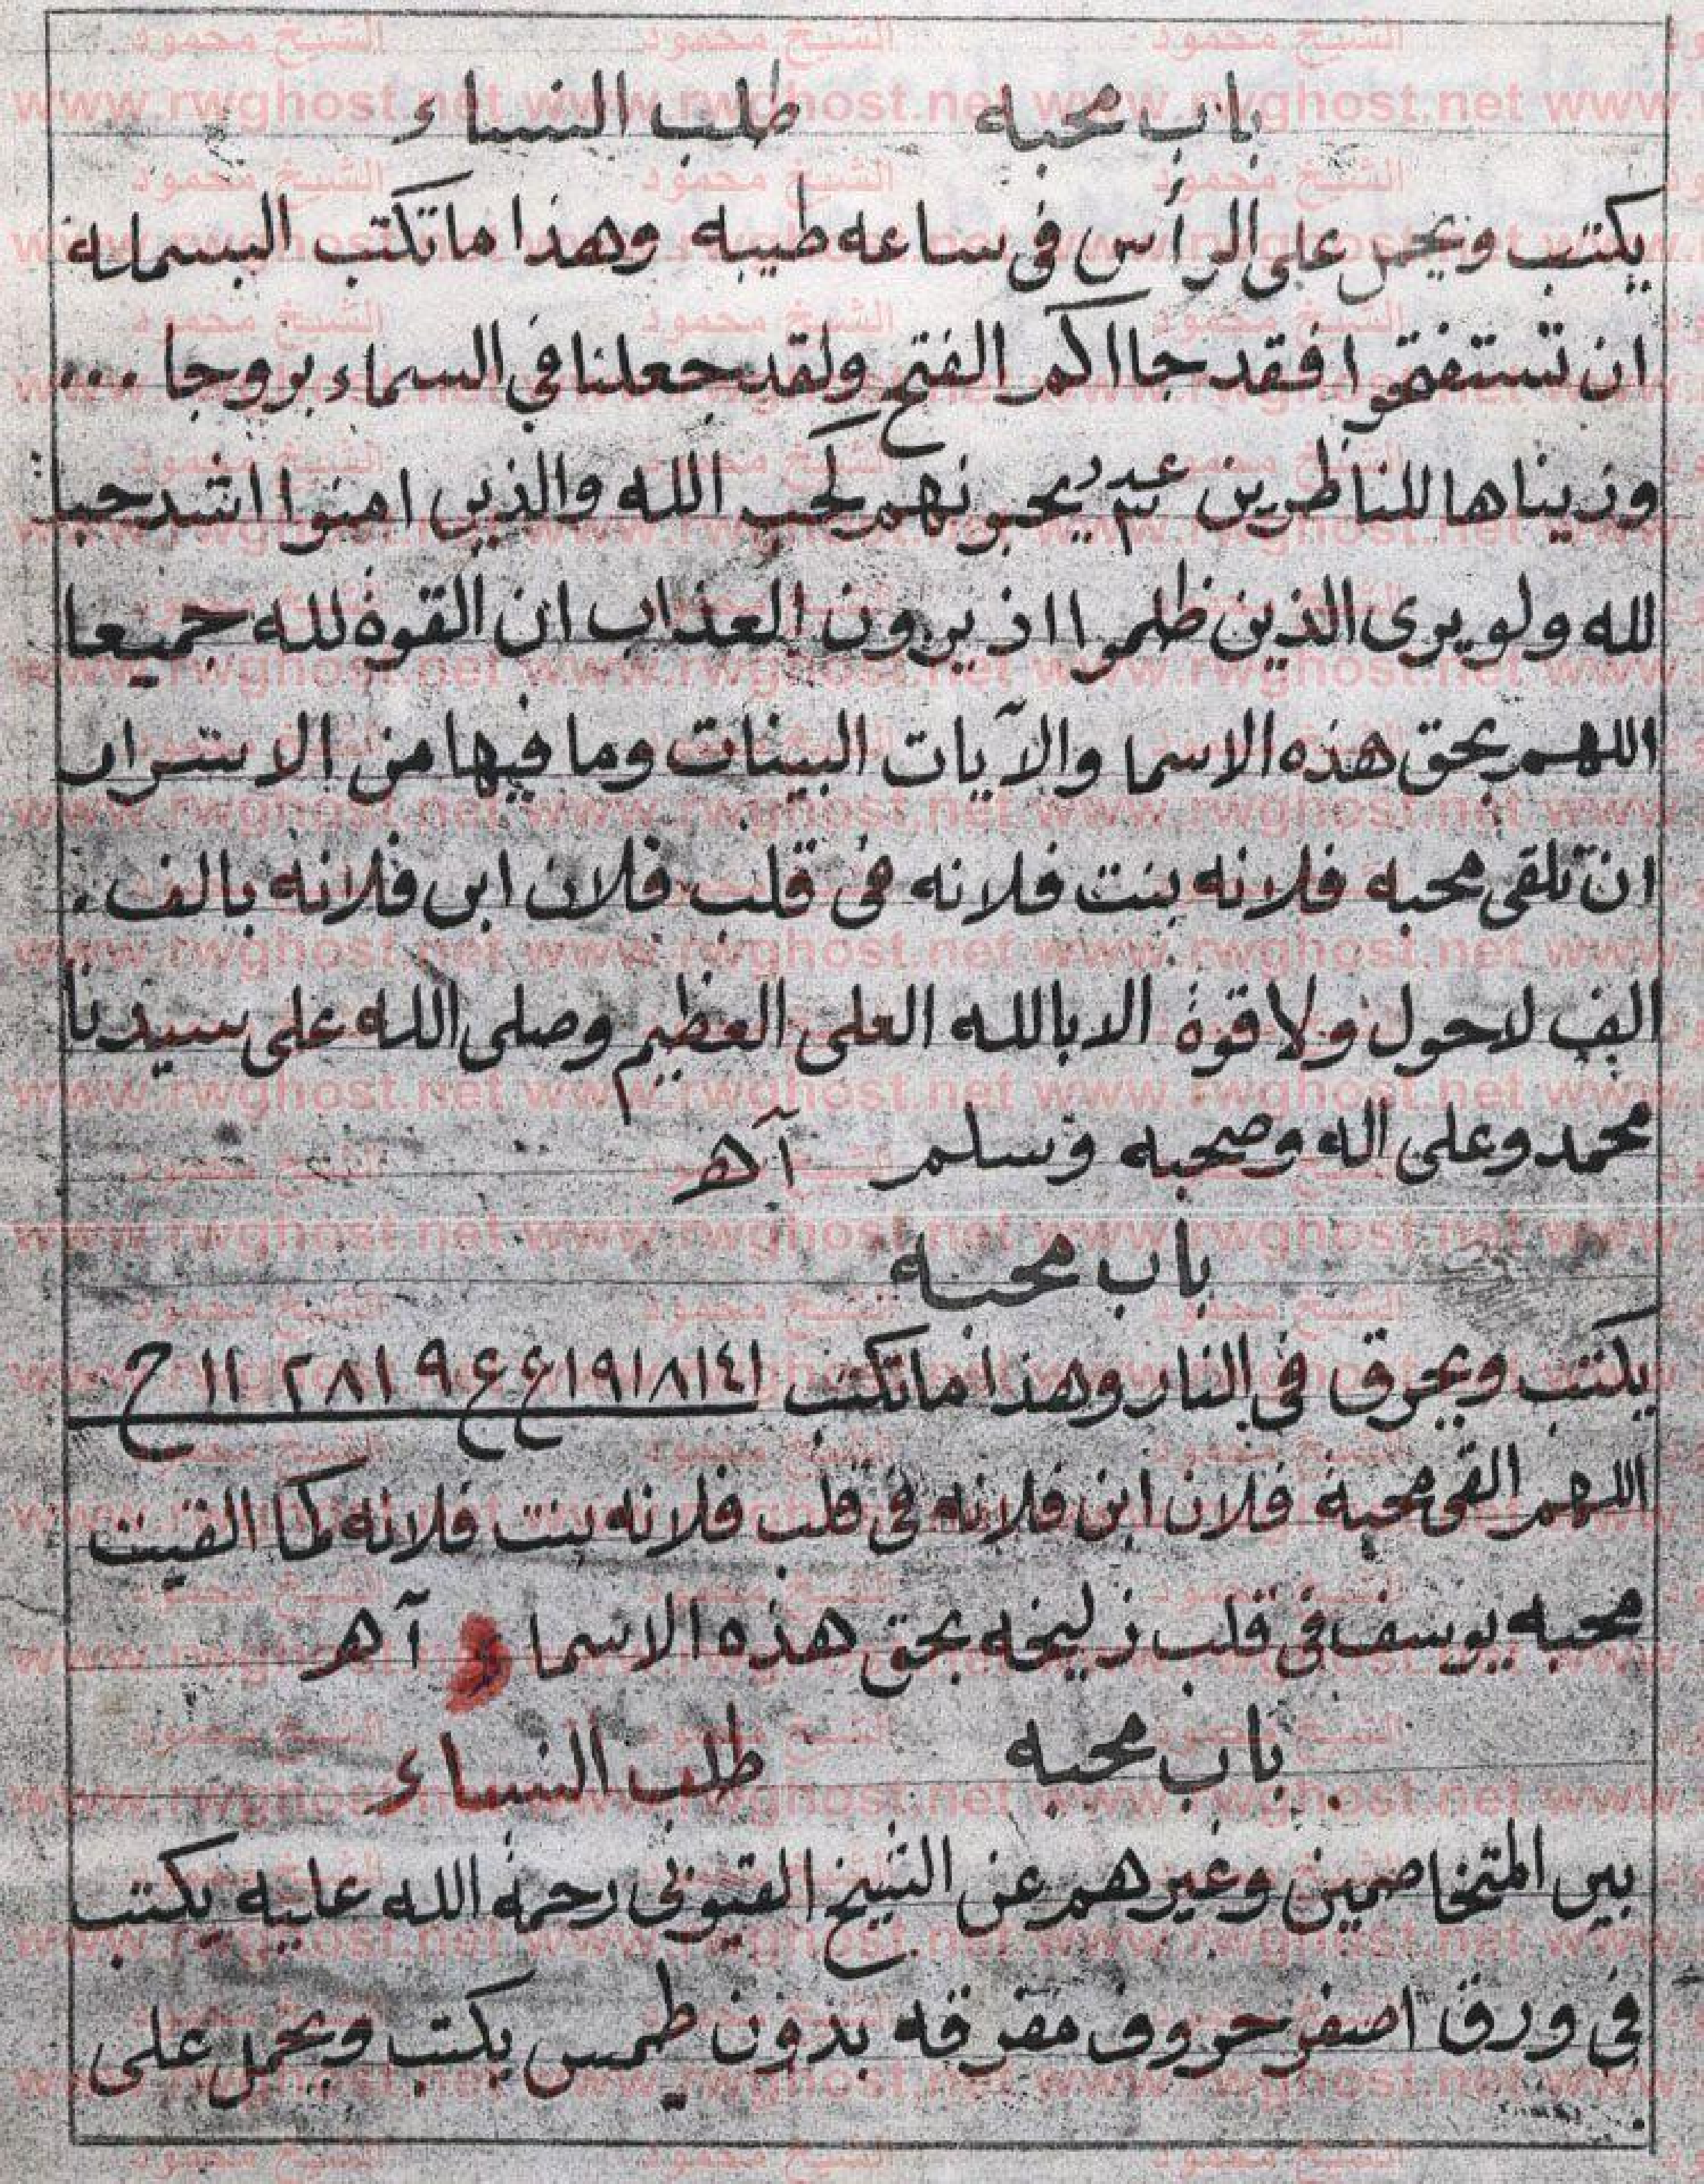 باب محبه طلب النساء
يكتب ويحمل على الرأس في ساعه طيبه وهذا ما تكتب البسملة
ان تستفتحوا فقد جااكم الفتح ولقد جعلنا في السماء بروجا ...
وزيناها للناظرين يحبونهم كحب الله والذين امنوا اشد حبا
لله ولو يرى الذين ظلموا اذ يرون العذاب ان القوة لله جميعا
اللهم بحق هذه الاسما والآيات البينات وما فيها من الاسرار
ان تلقى محبه فلانه بنت فلانه في قلب فلان ابن فلانه بالف
الف لاحول ولا قوة الا بالله العلى العظيم وصلى الله على سيدنا
محمد وعلى اله وصحبه وسلم آهـ
باب محبه
يكتب ويحرق في النار وهذا ما تكتب ١٩١٨١٤١ع ع ٩ ٢٨١ ١١ ح
اللهم القى محبة فلان ابن فلانه في قلب فلانه بنت فلانه كما القيت
محبه يوسف في قلب زليخه بحق هذه الاسما آهـ
باب محبه طلب النساء
بين المتخاصمين وغيرهم عن الشيخ رحمة الله عليه يكتب
في ورق اصفر حروف مفرقه بدون طمس يكتب ويحمل على
الشيخ محمود
www.rwghost.net